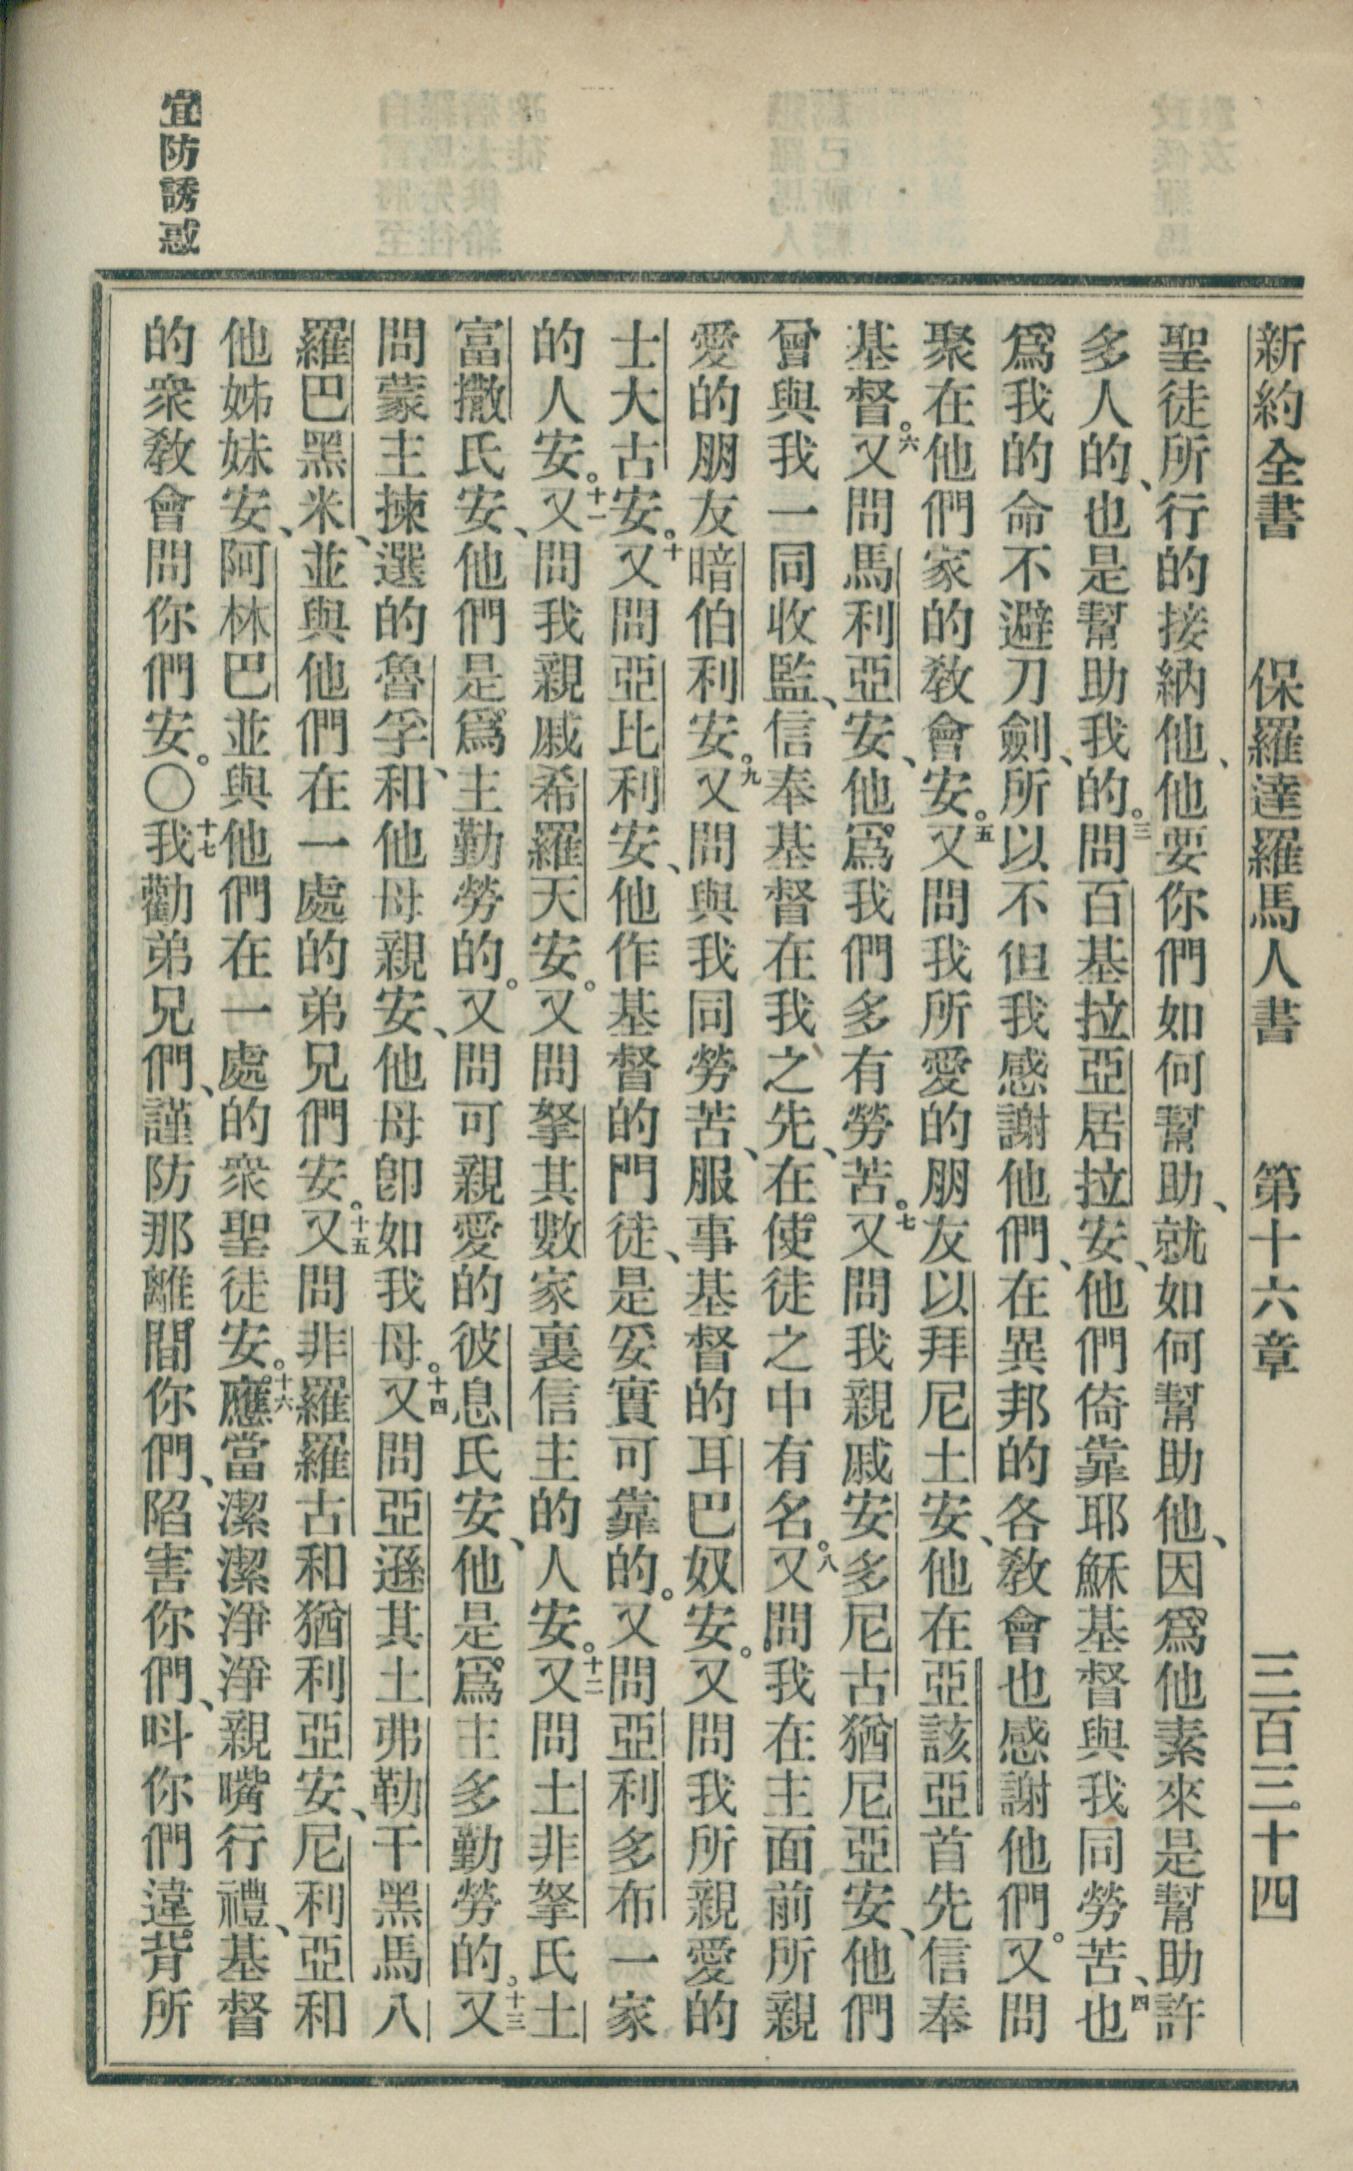 新約全書　保羅達羅馬人書　第十六章　三百三十四
聖徒所行的接納他、他要你們如何幫助、就如何幫助他、因爲他素來是幫助許
多人的、也是幫助我的。三問百基拉亞居拉安、他們倚靠耶穌基督與我同勞苦、四也
爲我的命不避刀劍、所以不但我感謝他們、在異邦的各敎會也感謝他們。又問
聚在他們家的敎會安。五又問我所愛的朋友以拜尼土安、他在亞該亞首先信奉
基督。六又問馬利亞安、他爲我們多有勞苦。七又問我親戚安多尼古猶尼亞安、他們
曾與我一同收監、信奉基督在我之先、在使徒之中有名。八又問我在主面前所親
愛的朋友暗伯利安。九又問與我同勞苦、服事基督的耳巴奴安。又問我所親愛的
士大古安。十又問亞比利安、他作基督的門徒、是妥實可靠的。又問亞利多布一家
的人安。十一又問我親戚希羅天安。又問拏其數家裏信主的人安。十二又問土非拏氏土
富撒氏安、他們是爲主勤勞的。又問可親愛的彼息氏安、他是爲主多勤勞的。十三又
問蒙主揀選的魯孚、和他母親安、他母卽如我母。十四又問亞遜其土弗勒干黑馬八
羅巴黑米、並與他們在一處的弟兄們安。十五又問非羅羅古和猶利亞安、尼利亞和
他姊妹安、阿林巴並與他們在一處的衆聖徒安。十六應當潔潔淨淨親嘴行禮、基督
的衆敎會問你們安。〇十七我勸弟兄們、謹防那離間你們、陷害你們、呌你們違背所
宜防誘惑